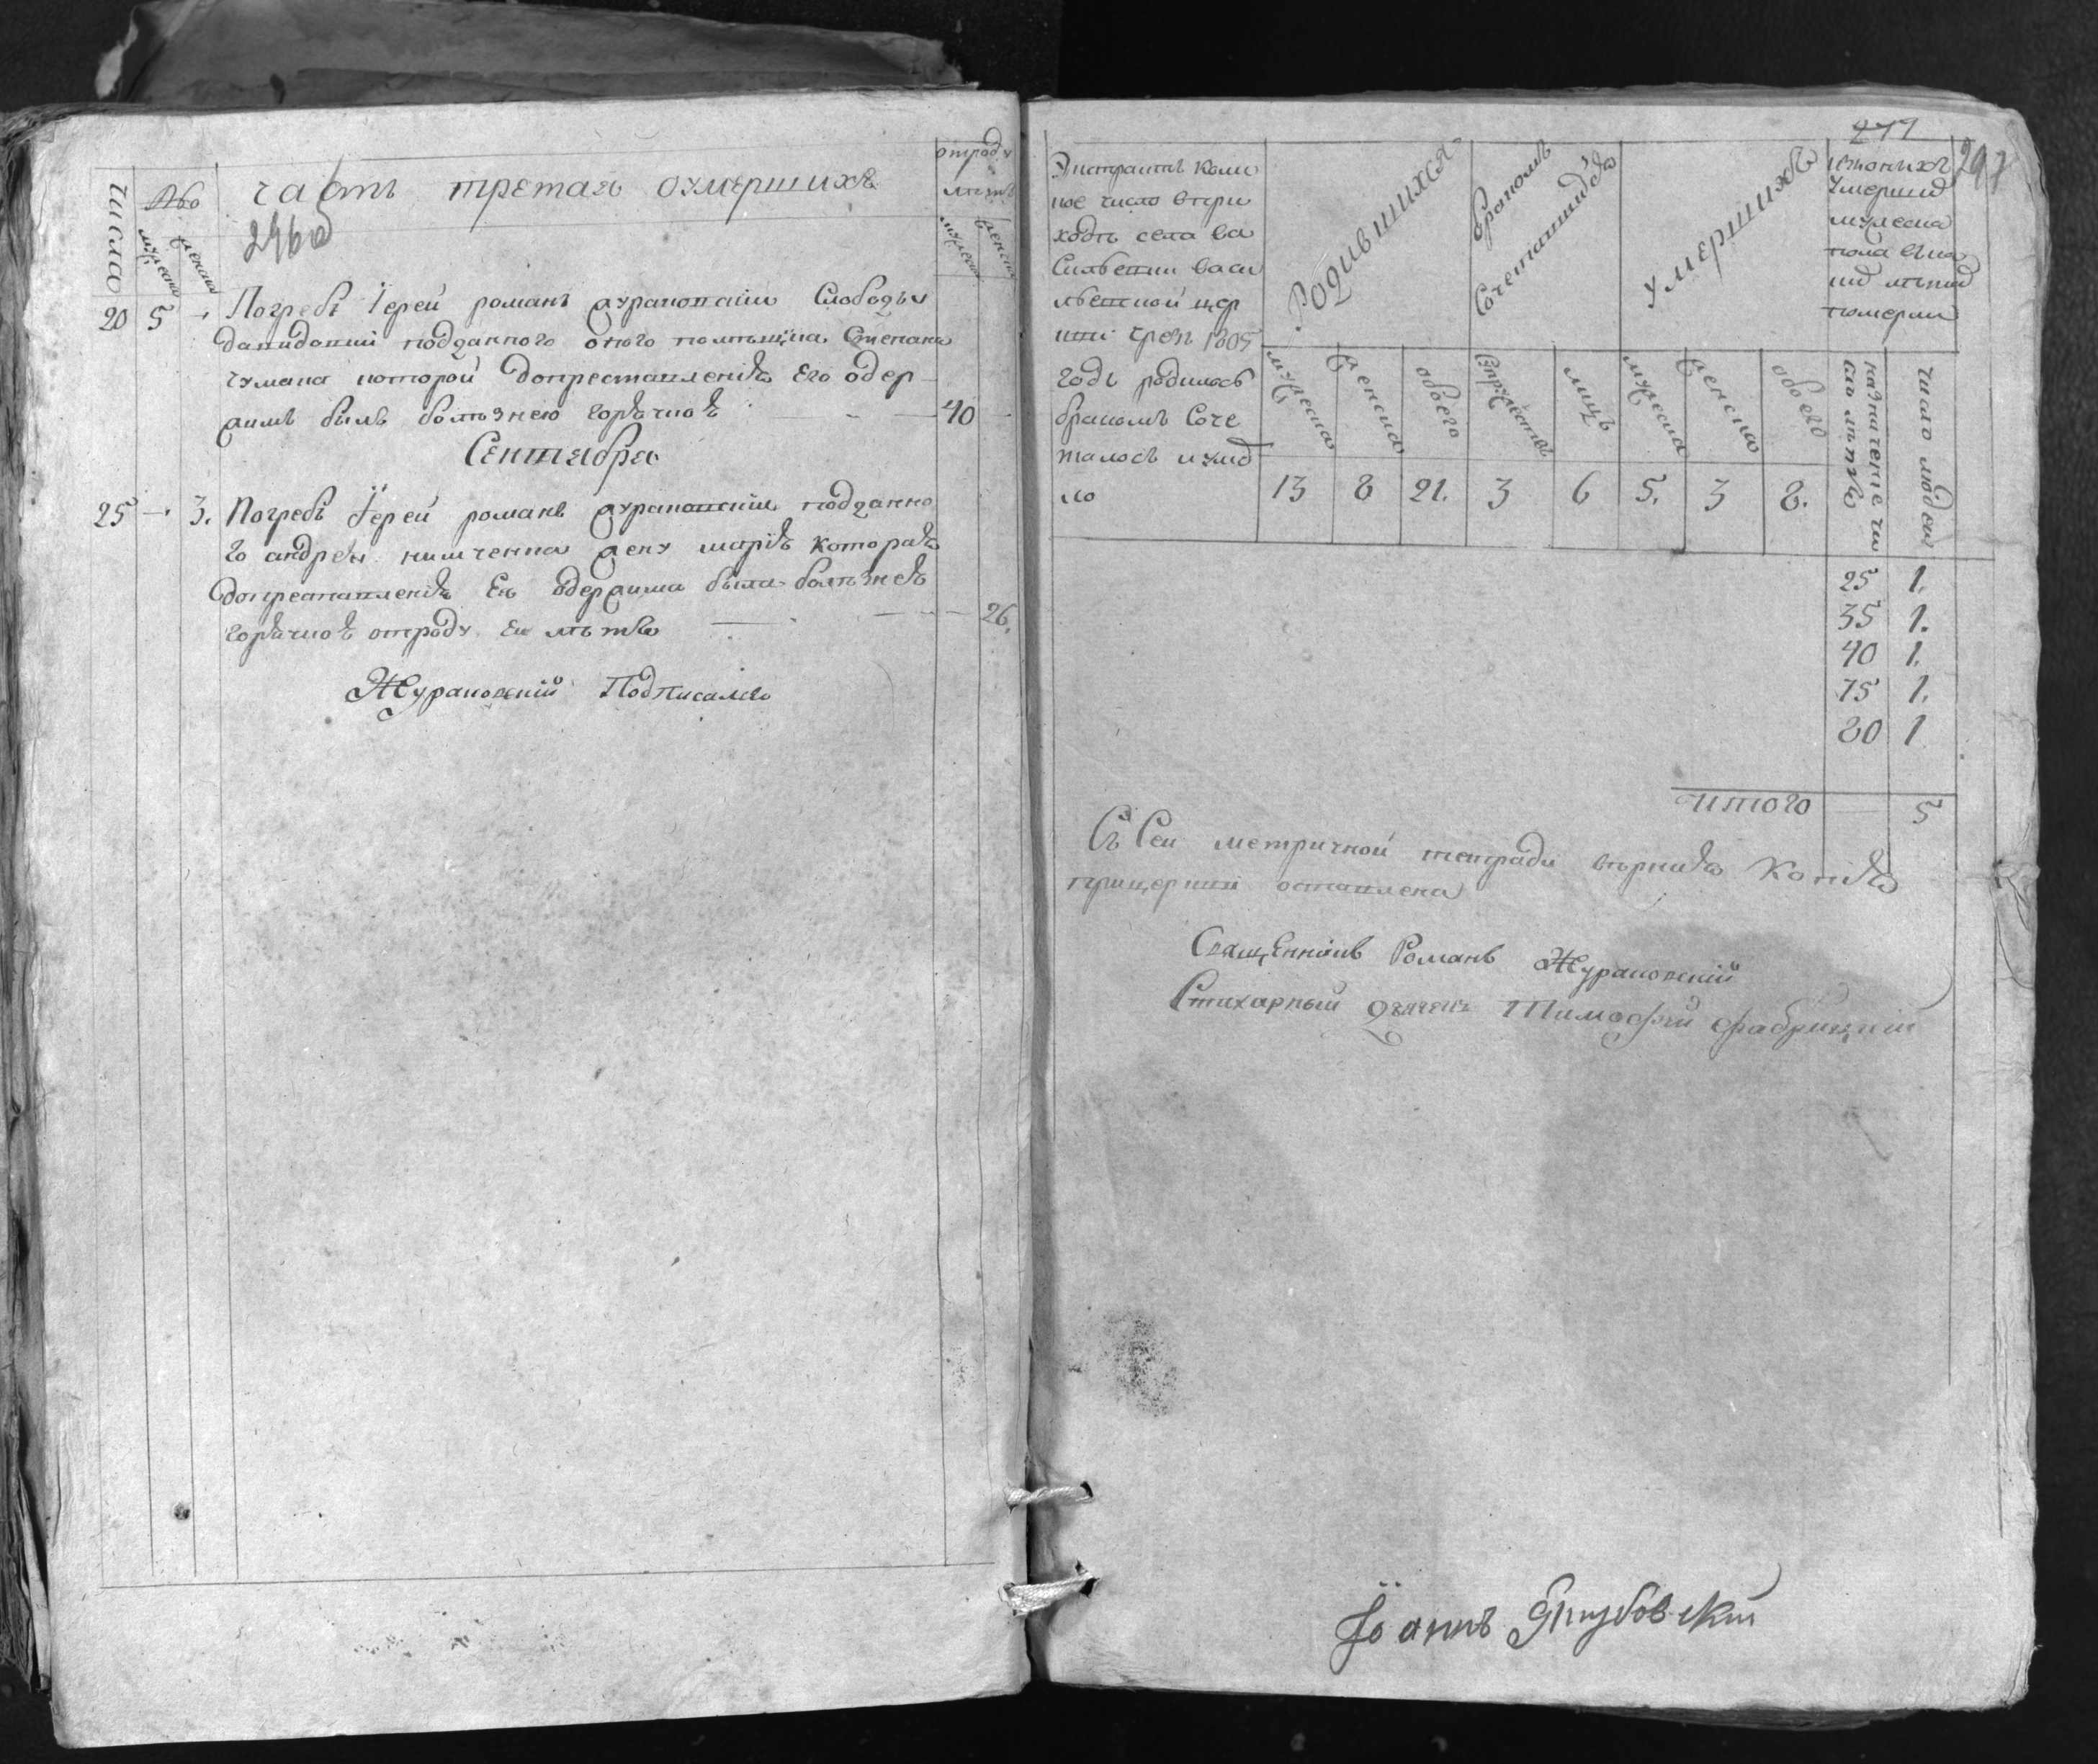 числа
№
мужеска
женска
часть третая оумершихъ
296об
отроду
лѣтъ
мужеска
женска
20 5 Погребъ Їерей романъ жураковскїй Слободы
давидовки подданного оного помѣщика Степана
чумака которой допреставленїя Его одер
жимъ былъ болѣзнею горячкоя 40
Сентября
25 3. Погребъ Їерей романъ жураковскїй подданно
го андрея жену марїю которая
допреставленїя Ея одержима была болѣзнею
горячкоя отроду Ея лѣтъ 26.
Журавовскїй Подписался
271
297
Экстрактъ коли
кое число впри
ходѣ села ва
сильевки васи
льевской цер
кви чрезъ 1805
годъ родилось
бракомъ Соче
талось иумер
ло
Родившихся
бракомъ
Сочетавшихся
умершихъ
изтонихъ
Умерших
мужеска
пола вка
ких лѣтах
померли
мужеска
женска
обоего
Супружествъ
лицъ
мужеска
женска
обоего
назначение чи
сло лѣтъ
число людей
13 8 21. 3 6 5. 3 8.
25 1.
35 1.
40 1.
75 1.
80 1
итого 5
Съ Сей метричной тетради вѣрная Копїя
прицеркви оставлена
Священникъ Романъ Жураковскїй
Стихарный дьячекъ Тимофей фабрицкїй
Їоаннъ Якубовскїй